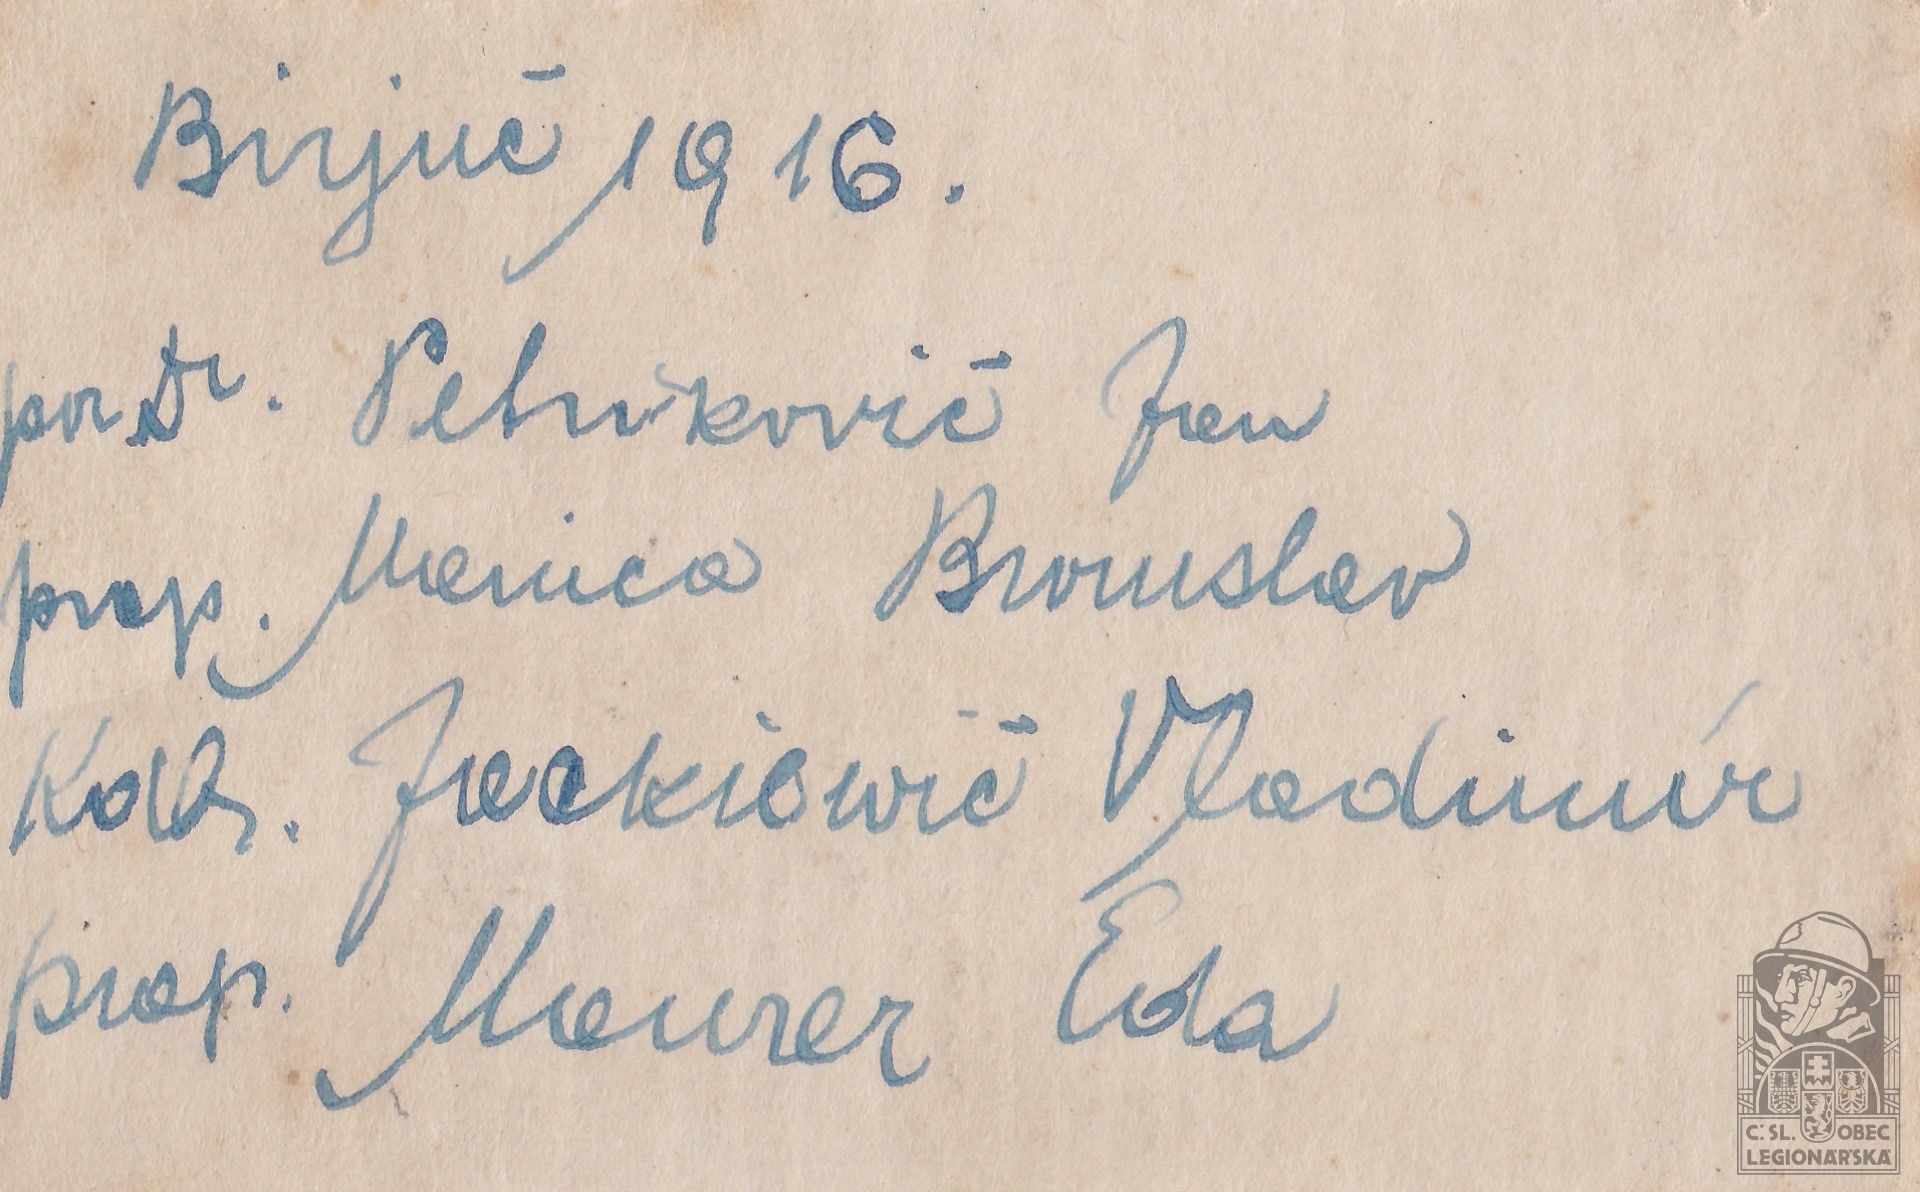 Birjuč 1916.
por Dr. Petruškovič Jan
prap. Manica Bronislav
Kadr. Jackiewič Vladimír
prap. Maurer Eda
Č.SL. OBEC
LEGIONÁŘSKÁ